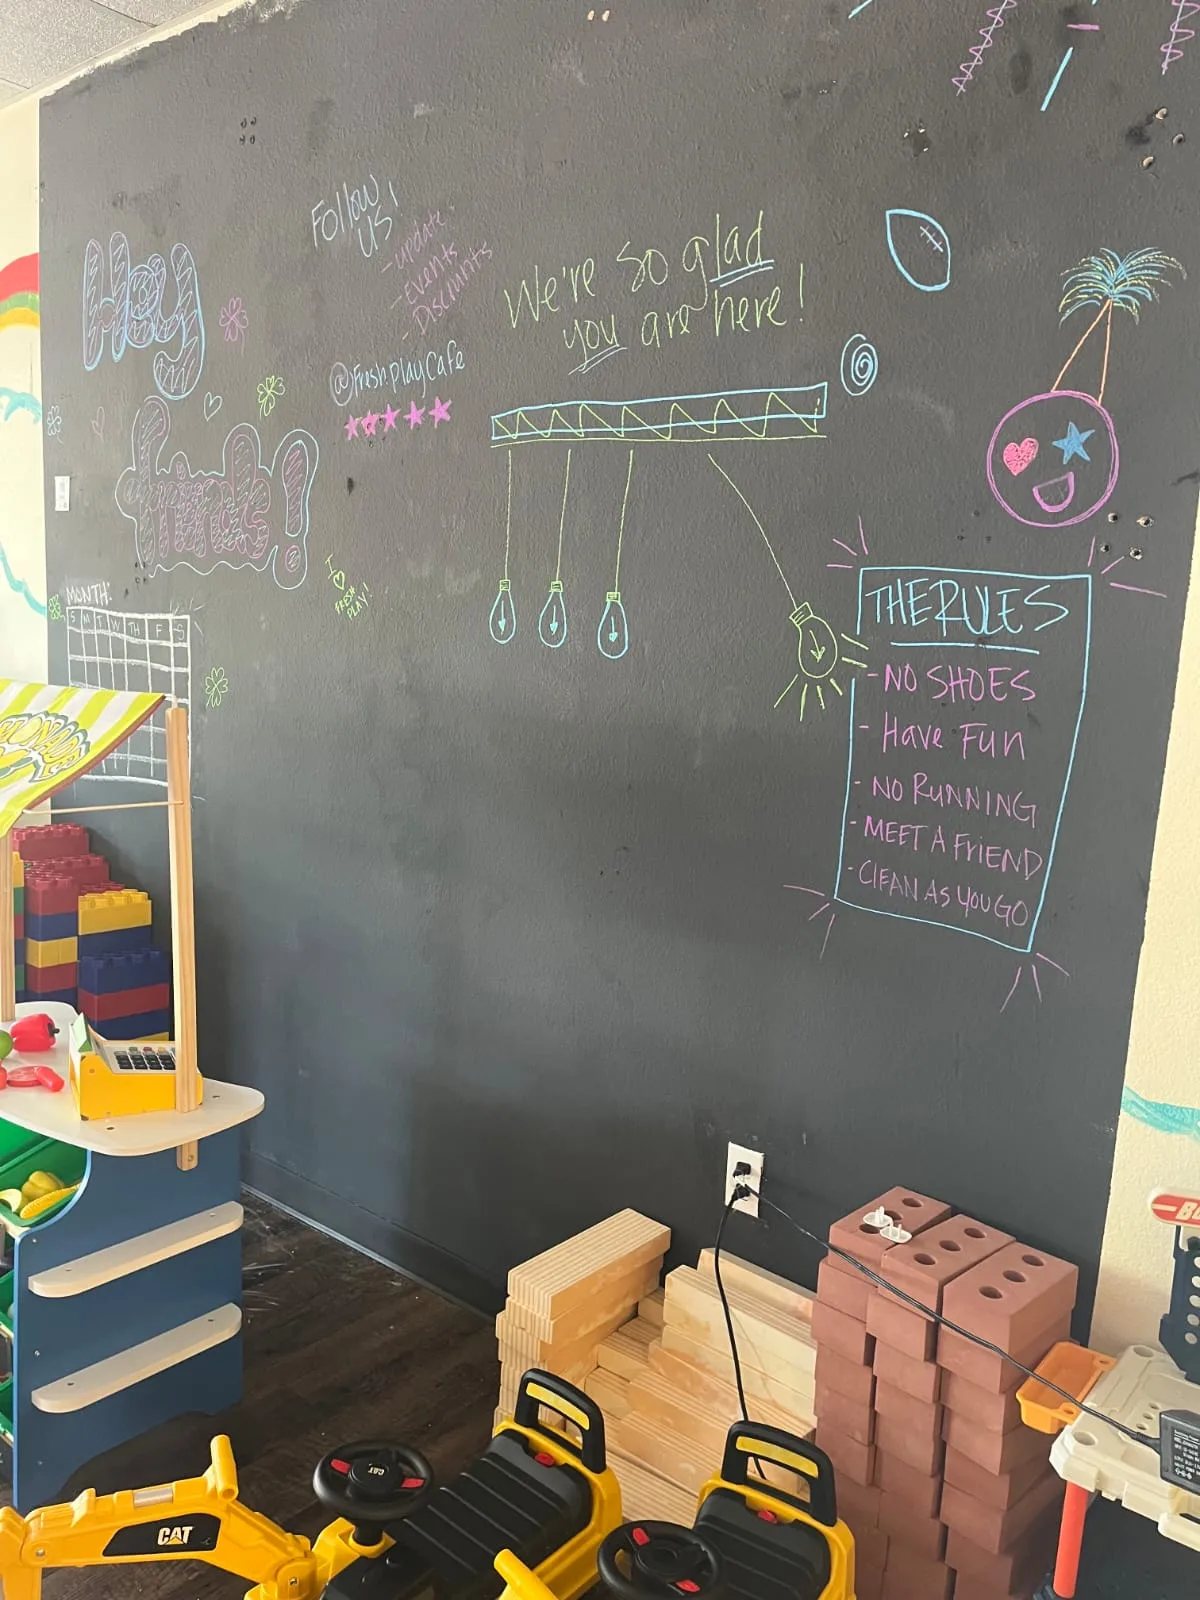 Hey
friends!
Follow
us!
- update
- Events
- Discounts
@FreshplayCafe
We're so glad
you are here!
I
FRESH
PLAY!
MONTH:
S M T W TH F S
THE RULES
- NO SHOES
- Have Fun
- NO RUNNING
- MEET A FRIEND
- CLEAN AS YOU GO
CAT
CAT